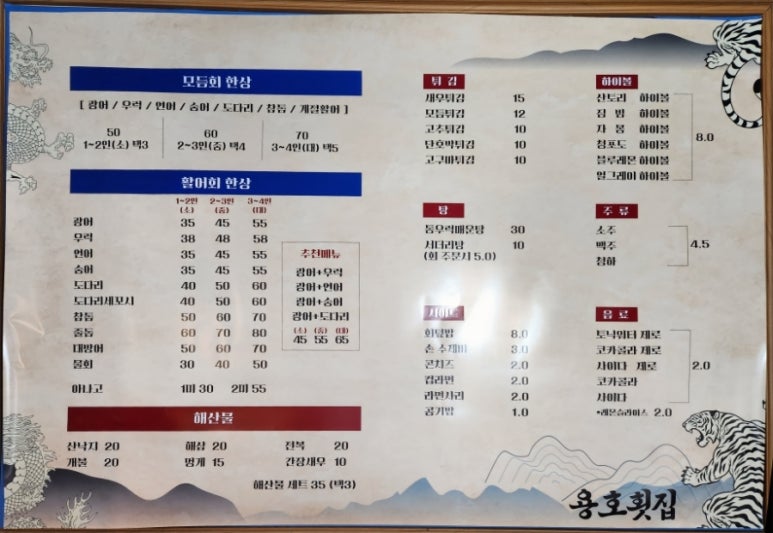 모듬회 한상
[ 광어 / 우럭 / 연어 / 숭어 / 도다리 / 참돔 / 계절활어 ]
50 60 70
1~2인(소) 택3 2~3인(중) 택4 3~4인(대) 택5
활어회 한상
1~2인 2~3인 3~4인
(소) (중) (대)
광어 35 45 55
우럭 38 48 58
연어 35 45 55
숭어 35 45 55
도다리 40 50 60
도다리세꼬시 40 50 60
참돔 50 60 70
줄돔 60 70 80
대방어 50 60 70
물회 30 40 50
아나고 1마 30 2마 55
추천메뉴
광어+우럭
광어+연어
광어+숭어
광어+도다리
(소) (중) (대)
45 55 65
해산물
산낙지 20 해삼 20 전복 20
개불 20 멍게 15 간장새우 10
해산물 세트 35 (택3)
튀김
새우튀김 15
모듬튀김 12
고추튀김 10
단호박튀김 10
고구마튀김 10
탕
통우럭매운탕 30
서더리탕 10
(회 주문시 5.0)
사이드
회덮밥 8.0
손 수제비 3.0
콘치즈 2.0
컵라면 2.0
라면사리 2.0
공기밥 1.0
하이볼
산토리 하이볼
짐빔 하이볼
자몽 하이볼
청포도 하이볼
블루레몬 하이볼
얼그레이 하이볼
8.0
주류
소주
맥주
청하
4.5
음료
토닉워터 제로
코카콜라 제로
사이다 제로
코카콜라
사이다
2.0
*레몬슬라이스 2.0
용호횟집